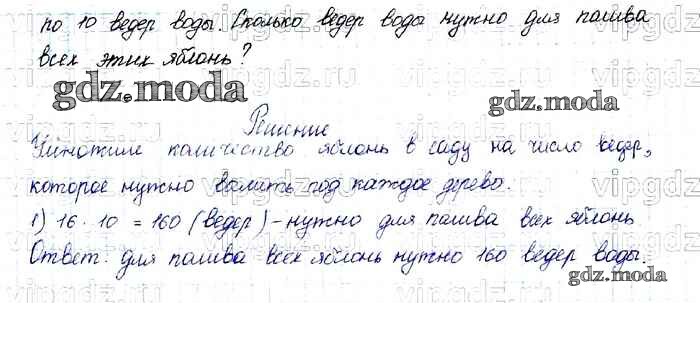 по 10 ведер воды. Сколько ведер воды нужно для полива
всех этих яблонь?
gdz.moda
gdz.moda
Решение
Умножим количество яблонь в саду на число ведер,
которое нужно вылить под каждое дерево.
1) 16 · 10 = 160 (ведер) – нужно для полива всех яблонь
Ответ: для полива всех яблонь нужно 160 ведер воды.
gdz.moda